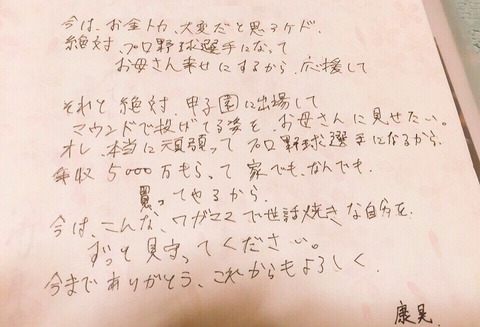 今は、お金トカ、大変だと思うケド、
絶対、プロ野球選手になって
お母さん幸せにするから、応援して
それと絶対、甲子園に出場して
マウンドで投げてる姿を、お母さんに見せたい。
オレ、本当に頑張って プロ野球選手になるから、
年収5000万もらって 家でも、なんでも、
買ってやるから、
今は、こんな、ワガママで世話焼きな自分を、
ずっと見守ってください。
今までありがとう、これからもよろしく、
康晃